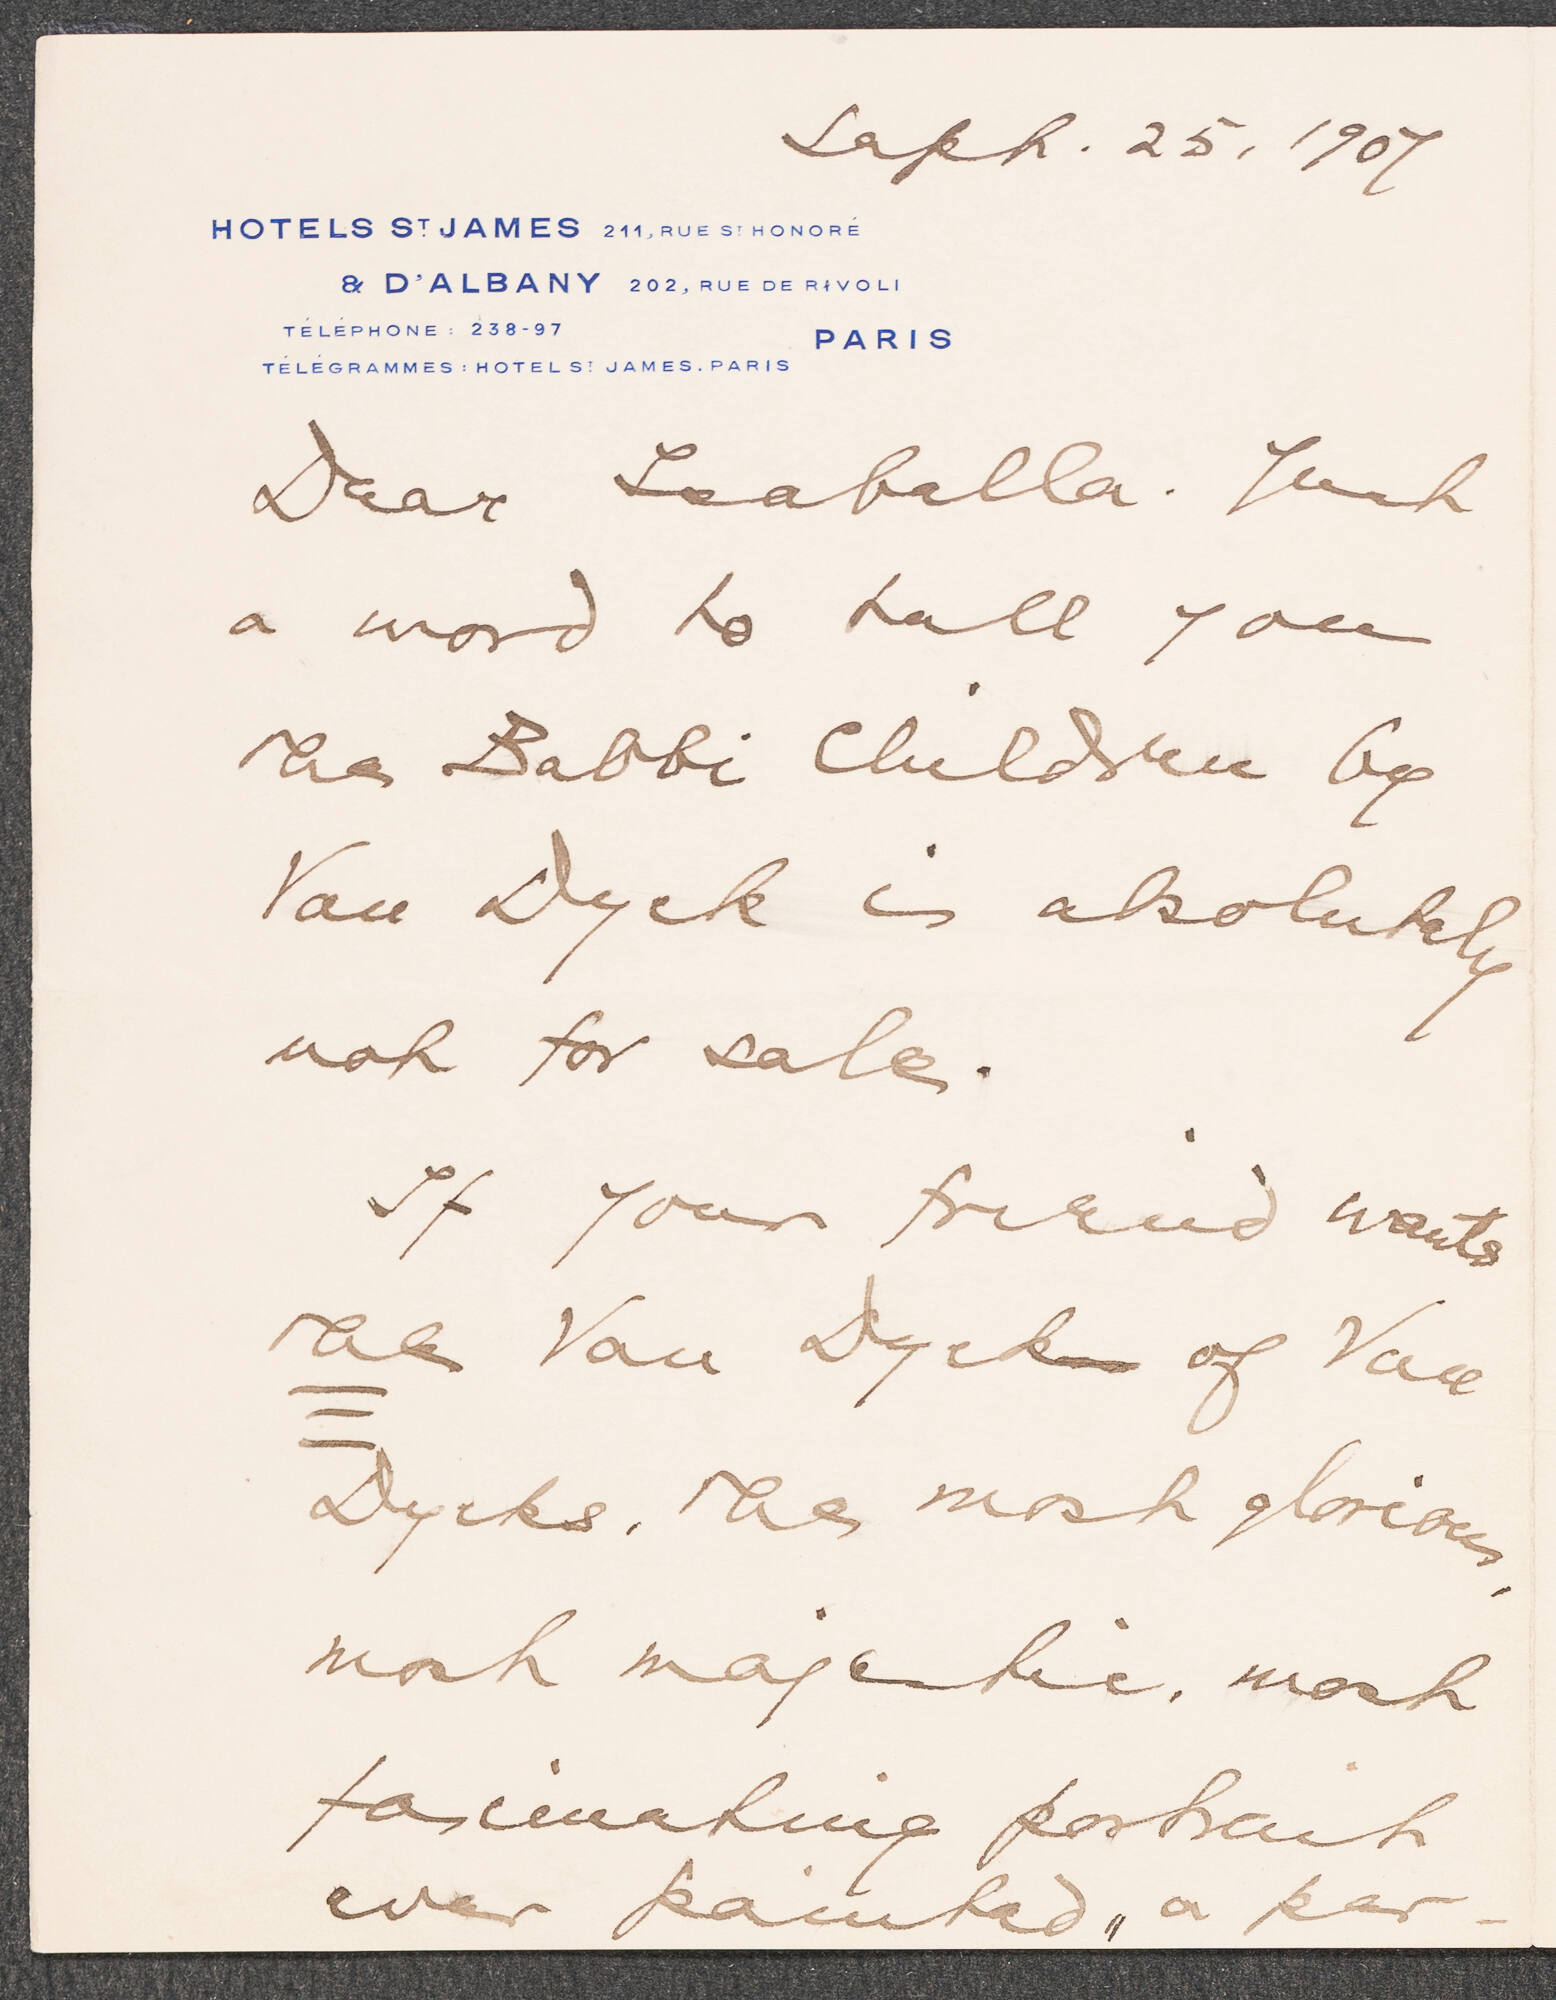 Sept. 25, 1907
HOTELS ST JAMES 211, RUE ST HONORÉ
& D'ALBANY 202, RUE DE RIVOLI
TÉLÉPHONE : 238-97
PARIS
TÉLÉGRAMMES : HOTEL ST JAMES. PARIS
Dear Isabella. Just
a word to tell you
the Balbi Children by
Van Dyck is absolutely
not for sale.
If your friend wants
the Van Dyck of Van
Dycks, the most glorious,
most majestic, most
fascinating portrait
ever painted, a per-